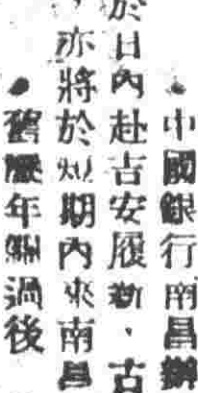 中國銀行南昌辦
於日內赴吉安履新、古
亦將於短期內來南昌
舊曆年關過後